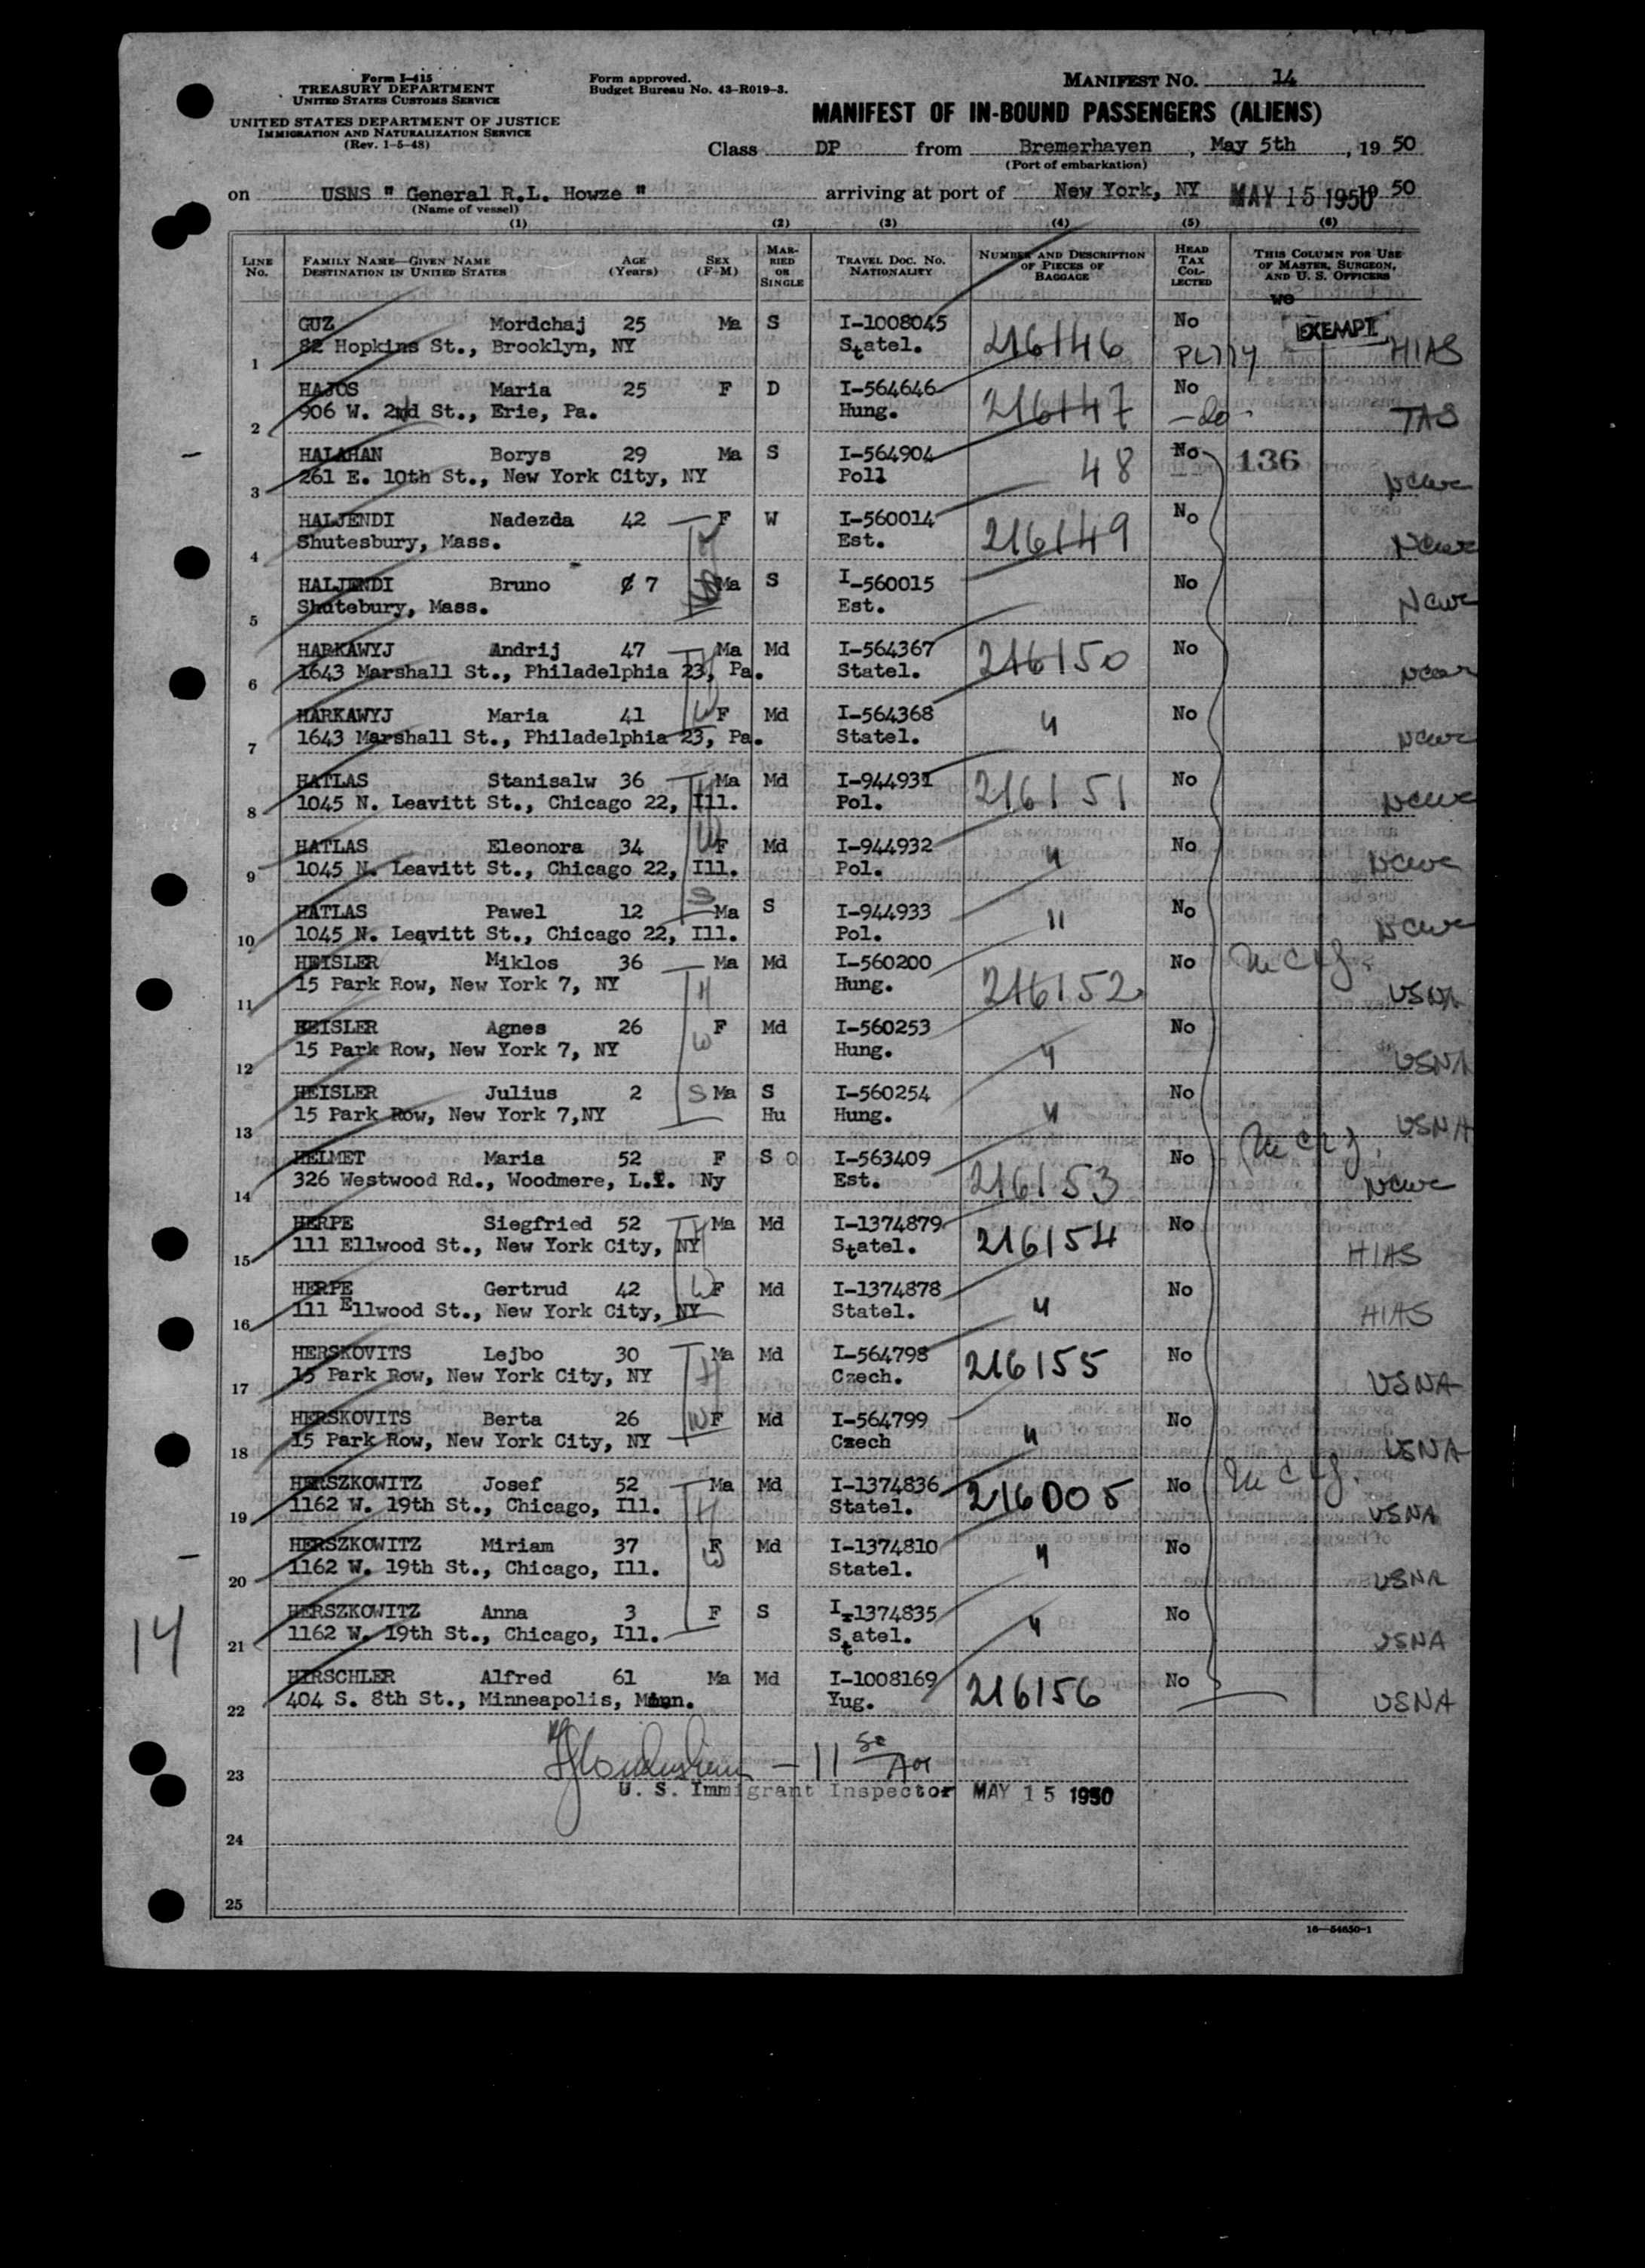 Form I-415
TREASURY DEPARTMENT
UNITED STATES CUSTOMS SERVICE
UNITED STATES DEPARTMENT OF JUSTICE
IMMIGRATION AND NATURALIZATION SERVICE
(Rev. 1-5-48)
Form approved.
Budget Bureau No. 43-R019-3.
MANIFEST NO. 14
MANIFEST OF IN-BOUND PASSENGERS (ALIENS)
Class DP from Bremerhaven, May 5th, 19 50
(Port of embarkation)
on USNS " General R.L. Howze " arriving at port of New York, NY MAY 15 1950 50
(Name of vessel)
(1) (2) (3) (4) (5) (6)
LINE No. FAMILY NAME—GIVEN NAME DESTINATION IN UNITED STATES AGE (Years) SEX (F-M) MARRIED OR SINGLE TRAVEL DOC. NO. NATIONALITY NUMBER AND DESCRIPTION OF PIECES OF BAGGAGE HEAD TAX COLLECTED THIS COLUMN FOR USE OF MASTER, SURGEON, AND U. S. OFFICERS
we
GUZ Mordchaj 25 Ma S I-1008045 216146 No EXEMPT HIAS
1 82 Hopkins St., Brooklyn, NY Statel. PL774
HAJOS Maria 25 F D I-564646 216147 No
2 906 W. 2nd St., Erie, Pa. Hung. -do- TAS
HALAHAN Borys 29 Ma S I-564904 48 No 136
3 261 E. 10th St., New York City, NY Poll NCWC
HALJENDI Nadezda 42 F W I-560014 216149 No
4 Shutesbury, Mass. Est. NCWC
HALJENDI Bruno 7 Ma S I-560015 No
5 Shutebury, Mass. Est. NCWC
HARKAWYJ Andrij 47 Ma Md I-564367 216150 No
6 1643 Marshall St., Philadelphia 23, Pa. Statel. NCWC
HARKAWYJ Maria 41 W F Md I-564368 " No
7 1643 Marshall St., Philadelphia 23, Pa. Statel. NCWC
HATLAS Stanisalw 36 H Ma Md I-944931 216151 No
8 1045 N. Leavitt St., Chicago 22, Ill. Pol. NCWC
HATLAS Eleonora 34 W F Md I-944932 " No
9 1045 N. Leavitt St., Chicago 22, Ill. Pol. NCWC
HATLAS Pawel 12 S Ma S I-944933 " No
10 1045 N. Leavitt St., Chicago 22, Ill. Pol. NCWC
HEISLER Miklos 36 H Ma Md I-560200 216152 No
11 15 Park Row, New York 7, NY Hung. USNA
HEISLER Agnes 26 W F Md I-560253 " No
12 15 Park Row, New York 7, NY Hung. USNA
HEISLER Julius 2 S Ma S I-560254 " No
13 15 Park Row, New York 7,NY Hu Hung. USNA
HELMET Maria 52 F S O I-563409 216153 No
14 326 Westwood Rd., Woodmere, L.I. Ny Est. NCWC
HERPE Siegfried 52 H Ma Md I-1374879 216154 No
15 111 Ellwood St., New York City, NY Statel. HIAS
HERPE Gertrud 42 W F Md I-1374878 " No
16 111 Ellwood St., New York City, NY Statel. HIAS
HERSKOVITS Lejbo 30 H Ma Md I-564798 216155 No
17 15 Park Row, New York City, NY Czech. USNA
HERSKOVITS Berta 26 W F Md I-564799 " No
18 15 Park Row, New York City, NY Czech USNA
HERSZKOWITZ Josef 52 H Ma Md I-1374836 216005 No
19 1162 W. 19th St., Chicago, Ill. Statel. USNA
HERSZKOWITZ Miriam 37 W F Md I-1374810 " No
20 1162 W. 19th St., Chicago, Ill. Statel. USNA
HERSZKOWITZ Anna 3 F S I-1374835 " No
21 1162 W. 19th St., Chicago, Ill. Statel. USNA
14
HIRSCHLER Alfred 61 Ma Md I-1008169 216156 No
22 404 S. 8th St., Minneapolis, Minn. Yug. USNA
23
U. S. Immigrant Inspector MAY 15 1950
24
25
16—54650-1